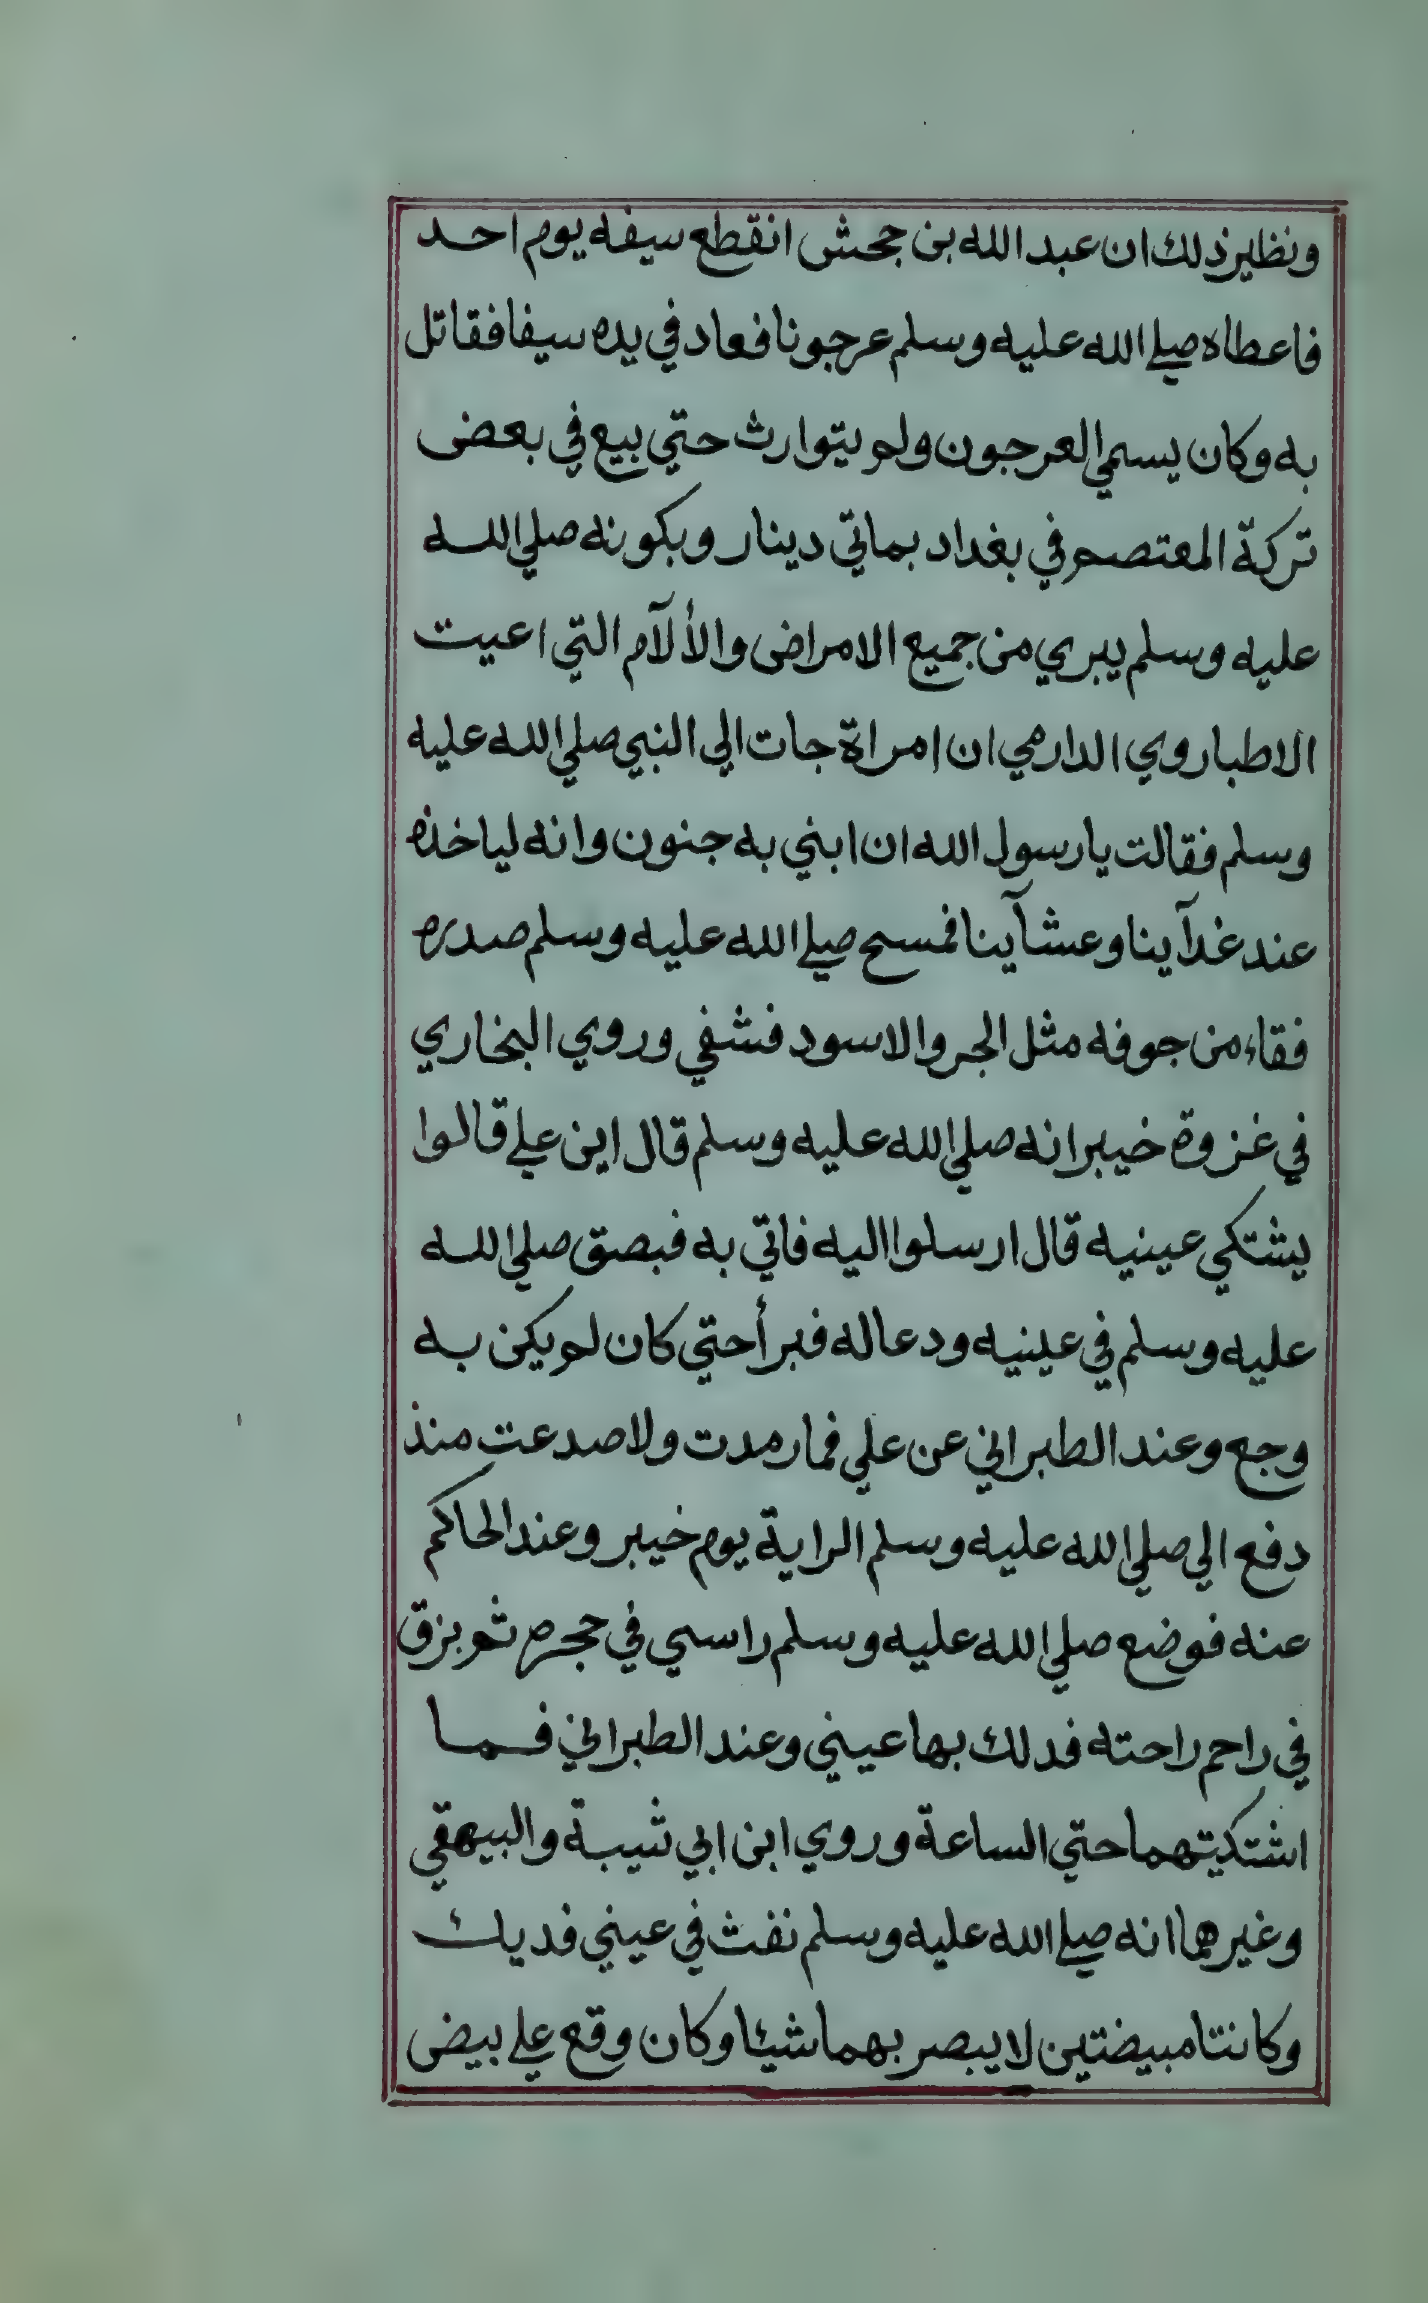 ونظير ذلك ان عبد الله بن جحش انقطع سيفه يوم احد
فاعطاه صلي الله عليه وسلم عرجونا فعاد في يده سيفا فقاتل
به وكان يسمي العرجون ولم يتوارث حتي بيع في بعض
تركة المعتصم في بغداد بماتي دينار وبكونه صلي الله
عليه وسلم يبري من جميع الامراض والألآم التي اعيت
الاطبا روي الدارمي ان امراة جات الي النبي صلي الله عليه
وسلم فقالت يا رسول الله ان ابني به جنون وانه لياخذه
عند غدآينا وعشآينا فمسح صلي الله عليه وسلم صدره
فقاء من جوفه مثل الجرو الاسود فشفي وروي البخاري
في غزوة خيبر انه صلي الله عليه وسلم قال اين علي قالوا
يشتكي عينيه قال ارسلوا اليه فاتي به فبصق صلي الله
عليه وسلم في عينيه ودعا له فبرأ حتي كان لم يكن به
وجع وعند الطبراني عن علي فما رمدت ولا صدعت منذ
دفع الي صلي الله عليه وسلم الراية يوم خيبر وعند الحاكم
عنه فوضع صلي الله عليه وسلم راسي في حجره ثم بزق
في راحم راحته فدلك بها عيني وعند الطبراني فما
اشتكيتهما حتي الساعة وروي ابن ابي شيبة والبيهقي
وغيرهما انه صلي الله عليه وسلم نفث في عيني فديك
وكانتا مبيضتين لا يبصر بهما شيئا وكان وقع علي بيض